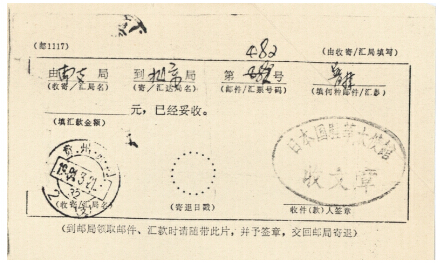 (邮1117) (由收寄/汇局填写)
482
由 局 到 北京 局 第 号
(收寄/汇局名) (寄/汇达局名) (邮件/汇票号码) (填何种邮件/汇票)
元,已经妥收。
(填汇款金额)
日本国驻华大使馆
收文章
(收寄/汇局名) (寄退日戳) 收件(款)人签章
(到邮局领取邮件、汇款时请随带此片,并予签章,交回邮局寄退)